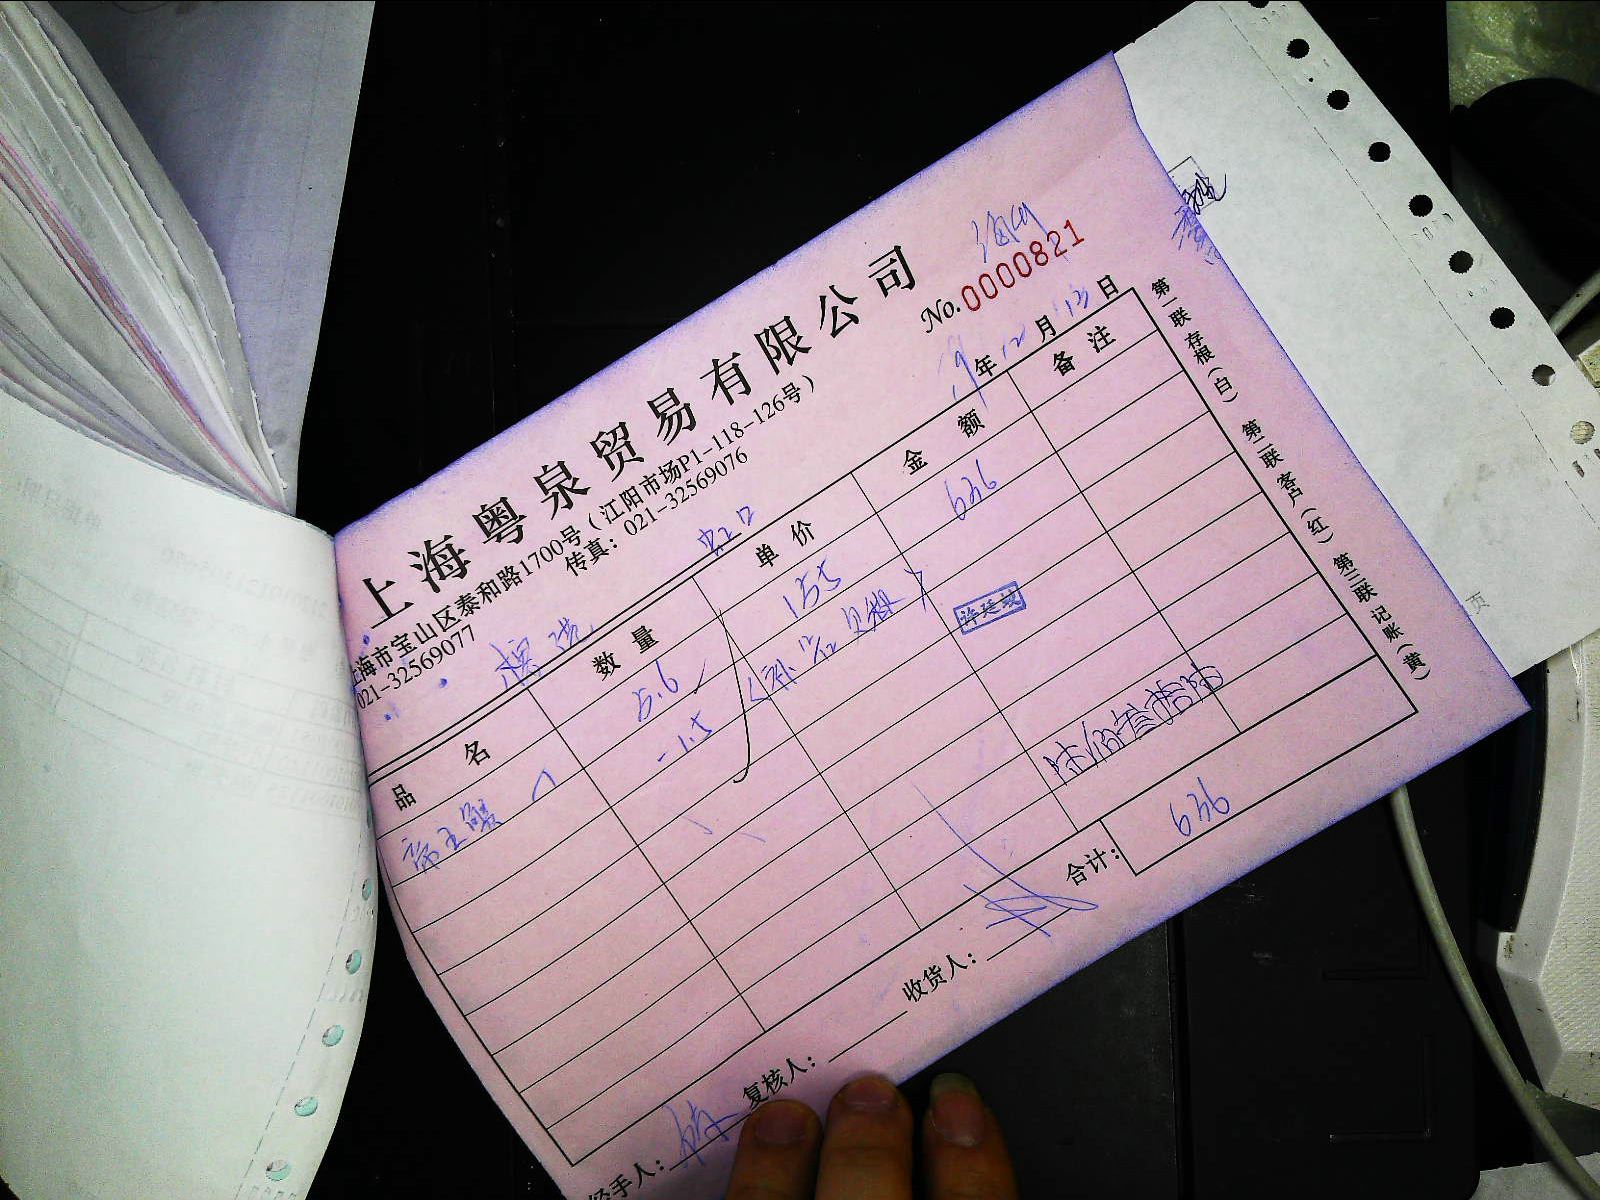 上海粤泉贸易有限公司
No.0000821
上海市宝山区泰和路1700号（江阳市场P1-118-126号）
021-32569077 传真：021-32569076
虹口
19年12月13日
品名 数量 单价 金额 备注
帝王蟹 5.6 155 636
-1.5
许廷
636
合计：
经手人： 复核人： 收货人：
第一联 存根（白） 第二联 客户（红） 第三联 记账（黄）
页